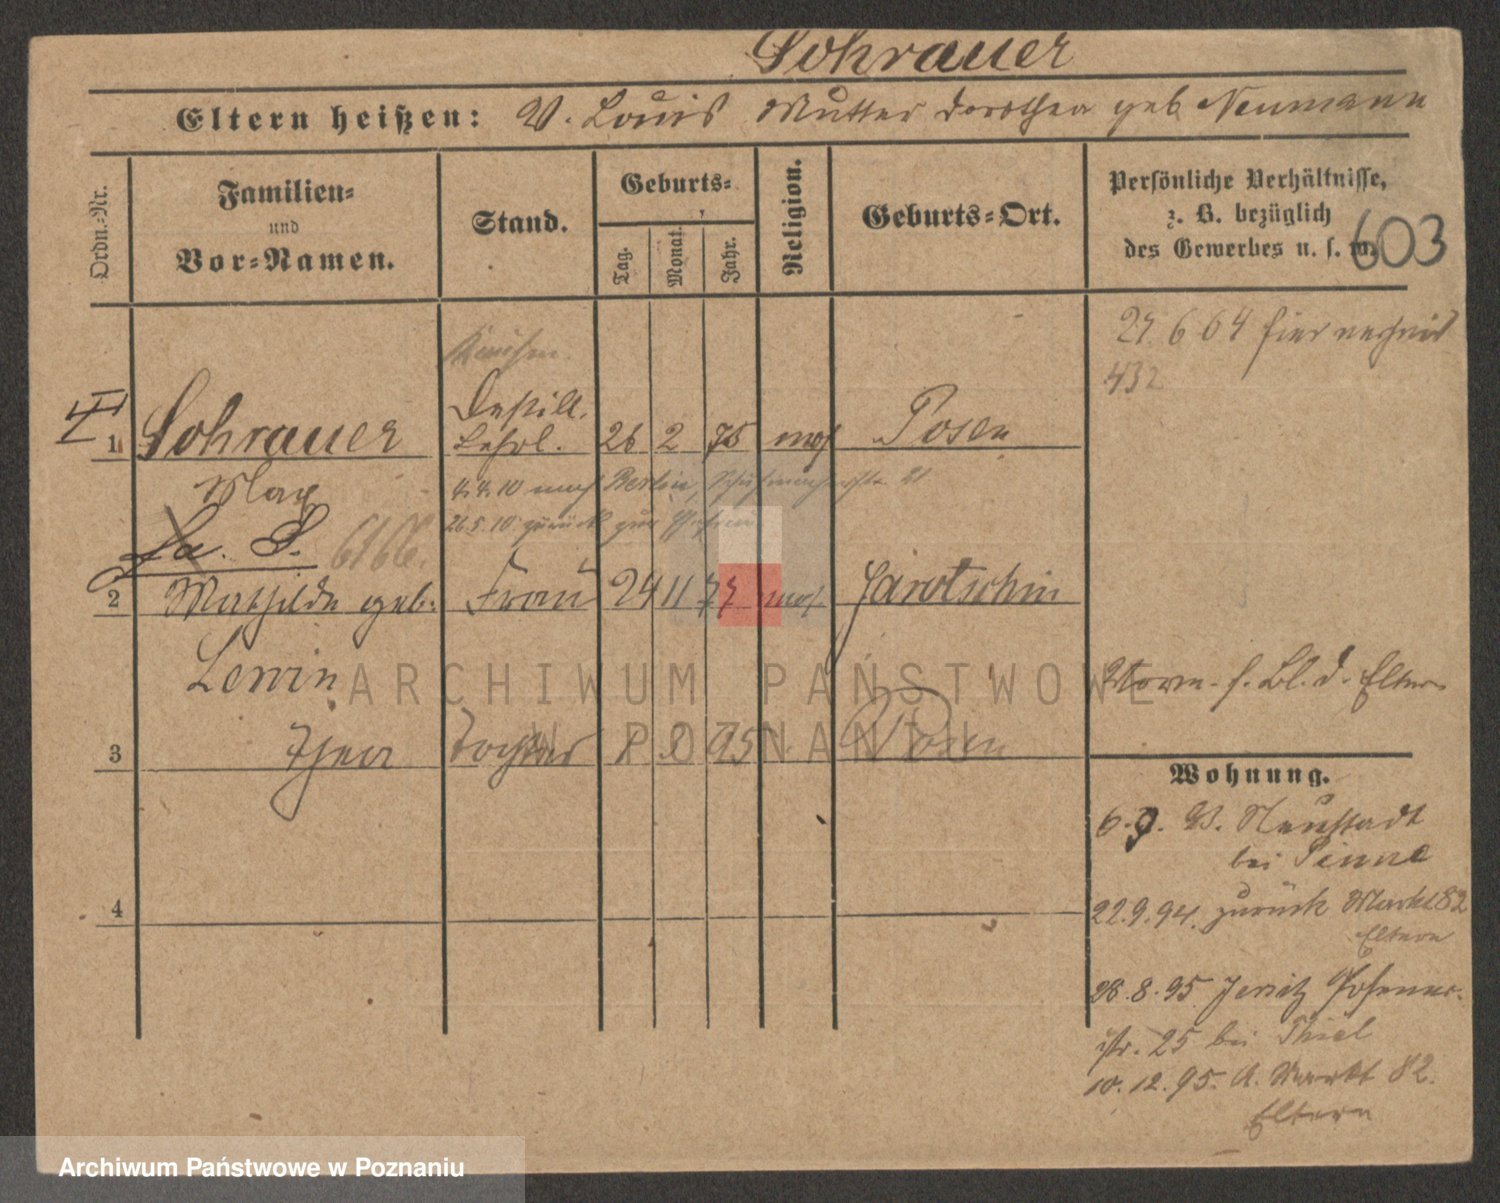 Sohrauer
Eltern heißen: V. Louis Mutter Dorothea geb Neumann
Ordn.-Nr.
Familien-
und
Vor-Namen.
Stand.
Geburts-
Tag.
Monat.
Jahr.
Religion.
Geburts-Ort.
Persönliche Verhältnisse,
z. B. bezüglich
des Gewerbes u. s. w.
603
432
1 Sohrauer Destill. Lehrl. 26 2 75 mos Posen
Max
4.4.10 nach Berlin,
26.5.10 zurück zur
Fa. S. 6166.
2 Mathilde geb. Frau 24 11 77 mos. Jarotschin
Lewin
Norm. s. Bl. d. Eltern
3 Thea Tochter 95 Posen
4
Wohnung.
6. Neustadt
bei Pinne
22.9.94. zurück Markt 82
Eltern
28.8.95 Jersitz Posener-
str. 25 bei Thiel
10.12.95. A. Markt 82.
Eltern
ARCHIWUM PAŃSTWOWE
W POZNANIU
Archiwum Państwowe w Poznaniu